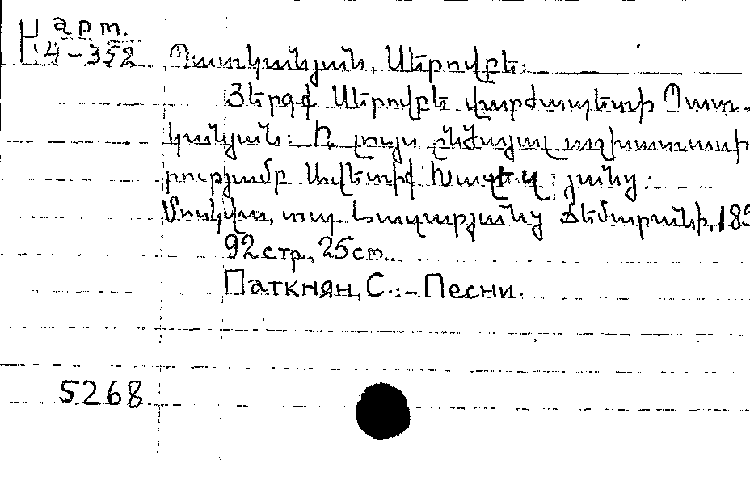 арт.
4-352
Պատկանյան, Սերովբե.
Յերգգ Սերովբե վարժապետի Պատ-
կանյան: Ի լույս ընծայալ աշխատասի
րությամբ Ավետիգ յանց:
Մոսկվա, տպ Լազարյանց Ճեմարանի, 185
92 стр., 25 см.
Паткнян, С. - Песни.
5268